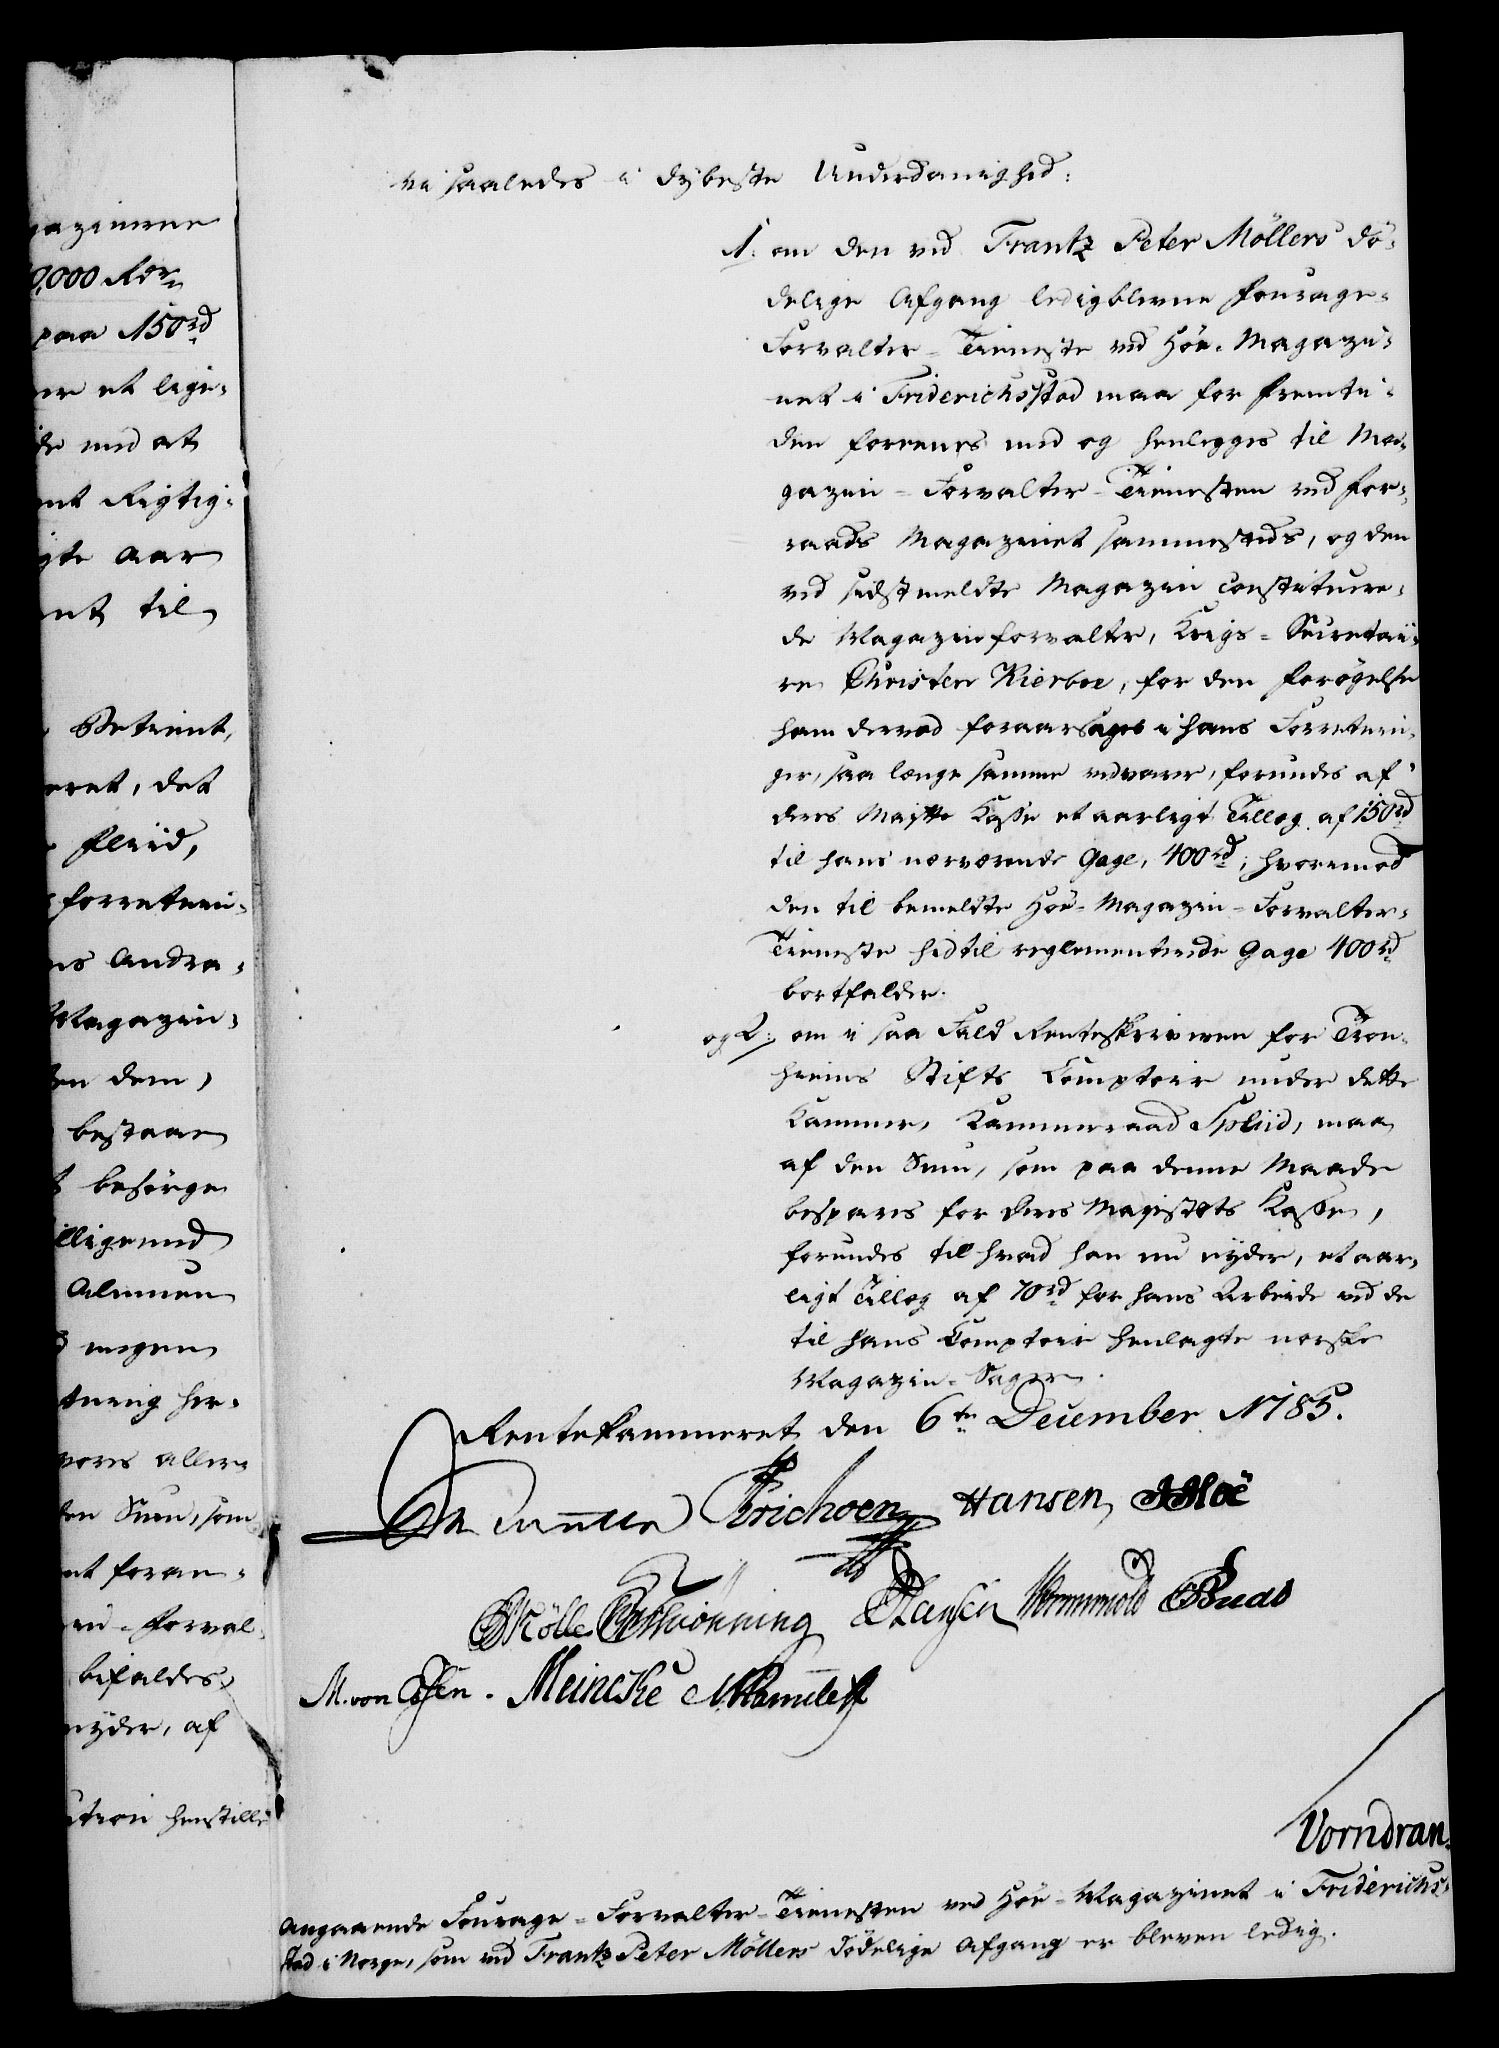 gazinerne
0,000 Rdr
paa 150rd
er et lige-
de med at
nt Rigtig-
gte Aar
nt til
Betient,
eret, det
Fliid,
forretnin-
ns Andra-
Magazin-
en dem,
bestaae
besörge
illigemed
Alumen
megen
tning her-
vores aller-
den Sum, som
nt foran-
in-Forval-
bifaldes,
nyder, af
ution henstille
vi saaledes i dybeste Underdanighed:
1. om den ved Frantz Peter Möllers dö-
delige Afgang ledigblevne Fourage-
Forvalter-Tieneste ved Höe-Magazi-
net i Friderichsstad maa for Fremti-
den foreenes med og henlegges til Ma-
gazin-Forvalter-Tienesten ved For-
raads Magazinet sammesteds, og den
ved sidstmeldte Magazin constituere-
de Magazinforvalter, Krigs-Secretai-
re Christen Kierboe, for den Forögelse
ham derved foraarsages i hans Forretnin-
ger, saa længe samme vedvarer, forundes af
Deres Majtts Kasse et aarligt Tillæg af 150rd
til hans nærværende Gage, 400rd; hvoremod
den til bemeldte Höe-Magazin-Forvalter-
Tieneste hidtil reglementerede Gage 400rd
bortfalder.
og 2. om i saa Fald Renteskriveren for Tron-
hiems Stifts Comptoir under dette
Kammer, Kammerraad Spliid, maa
af den Sum, som paa denne Maade
bespares for Deres Majestæts Kasse,
forundes til hvad han nu nyder, et aar-
ligt Tillæg af 70rd for hans Arbeide ved de
til hans Comptoir henlagte norske
Magazin-Sager.
Rentekammeret den 6te December 1785.
Erichsen Hansen
Mölle Schiönning Hansen Wormskiold
M. von Essen. Meincke
Vorndran.
Angaaende Fourage-Forvalter-Tienesten ved Höe-Magazinet i Friderichs-
stad i Norge, som ved Frantz Peter Möllers dödelige Afgang er bleven ledig.